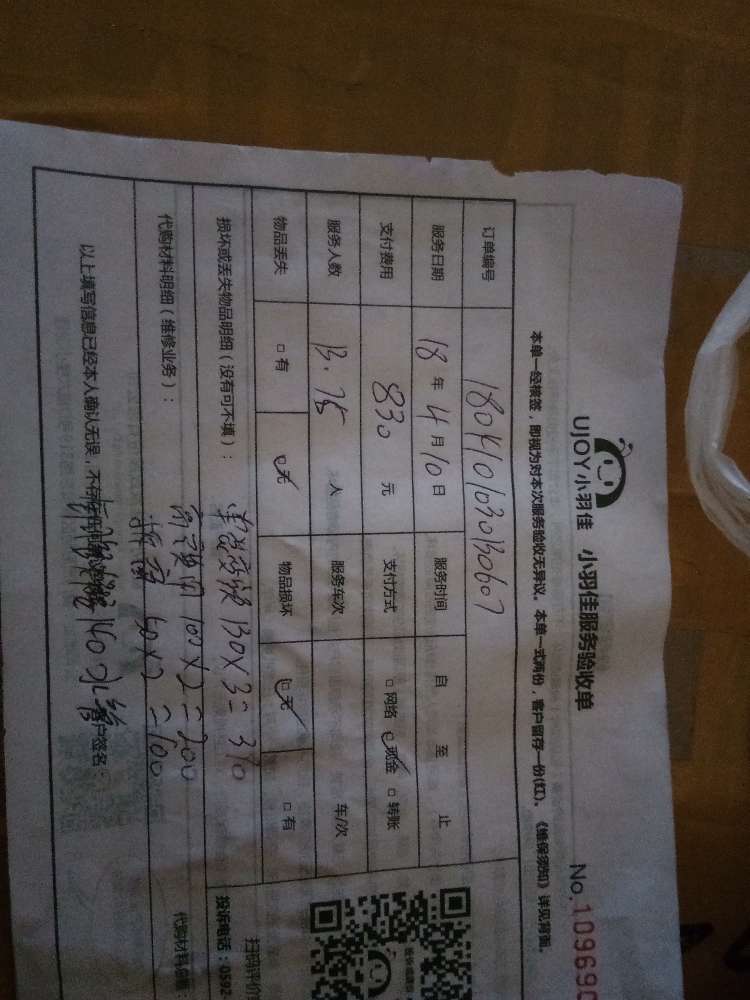 UJOY小羽佳 小羽佳服务验收单 No.109690
本单一经核签，即视为对本次服务验收无异议。本单一式两份，客户留存一份(红)。《维保须知》详见背面。
订单编号 1804101030130607
服务日期 18 年 4 月 10 日 服务时间 自 至 止
支付费用 830 元 支付方式 □网络 现金 □转账
服务人数 人 服务车次 车/次
物品丢失 □有 无 物品损坏 无 □有
损坏或丢失物品明细（没有可不填）： 130×3=390
100×2=200
代购材料明细（维修业务）： 50×2=100
140
以上填写信息已经本人确认无误，不存在 客户签名：
扫码评价
投诉电话：0592
代购材料总额：
UJOY